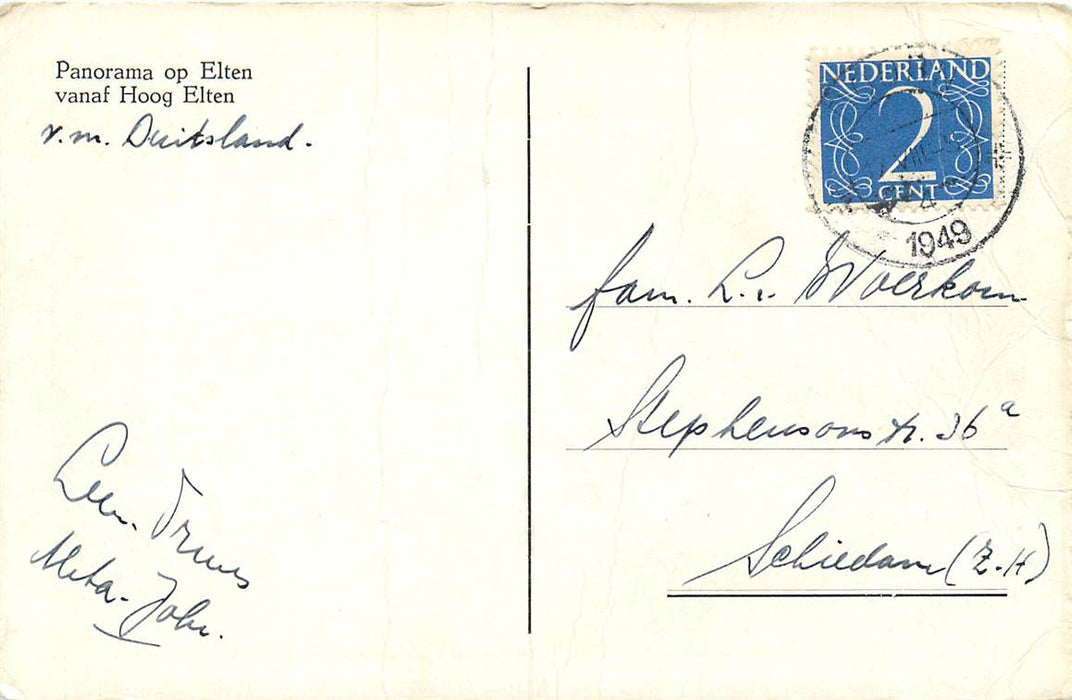 Panorama op Elten
vanaf Hoog Elten
v.m. Duitsland.
NEDERLAND
2
CENT
1949
fam. L. v. Woerkom
Stephensonstr. 36a
Schiedam (Z-H)
Leen. Truus
Meta - John.